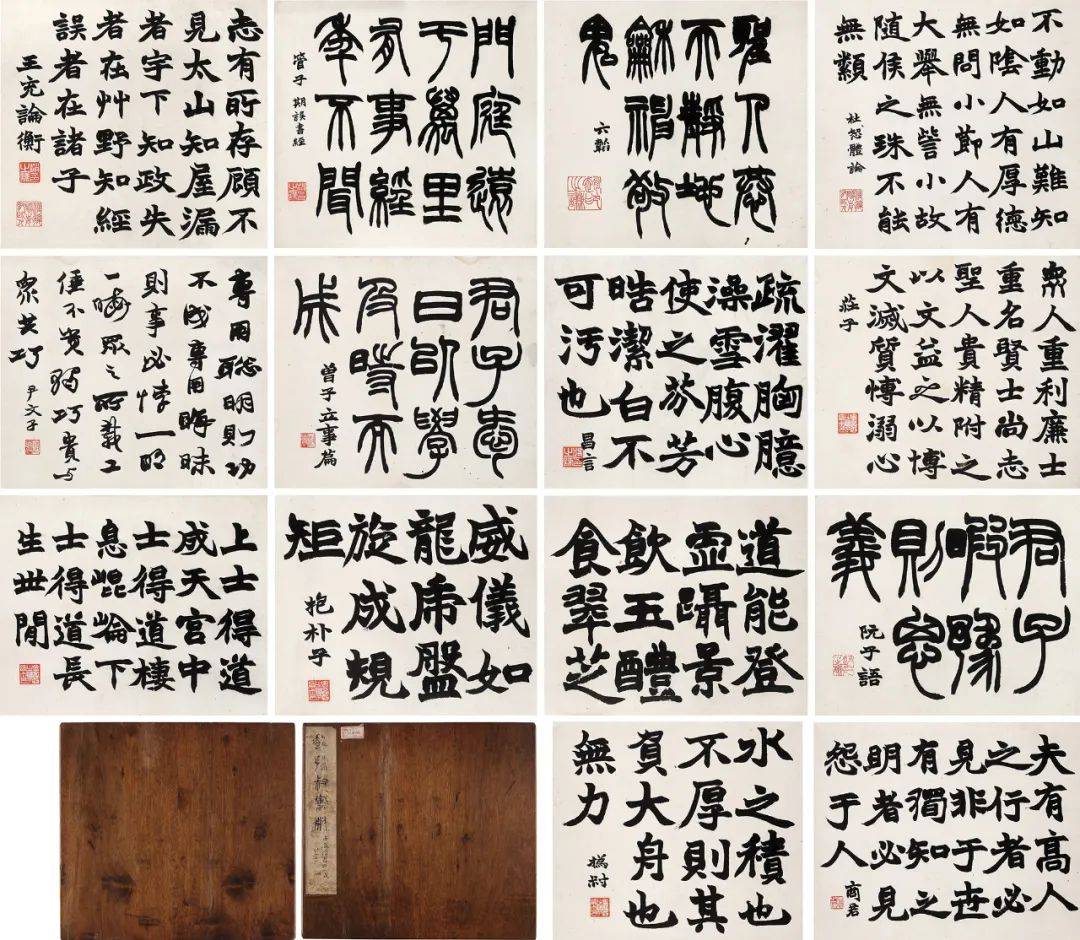 不動如山難知
如陰人有厚德
無問小節人有
大舉無訾小故
隨侯之珠不能
無纇
杜恕體論
聖人
天靜地
龢神敬
鬼
六韜
門庭遠
于萬里
有事經
季不聞
管子 期誤書經
志有所存顧不
見太山知屋漏
者宇下知政失
者在艸野知經
誤者在諸子
王充論衡
眾人重利廉士
重名賢士尚志
聖人貴精附之
以文益之以博
文滅質博溺心
莊子
疏濯胸臆
澡雪腹心
使之芬芳
皓潔白不
可污也
昌言
君子愛
日以學
及時而
成
曾子立事篇
專用聰明則功
不成專用晦昧
則事必悖一明
一晦眾之所載工
倕不貴獨巧貴與
眾共巧
尹文子
君子
暇豫
則思
義
阮子語
道能登
虛躡景
飲五醴
食翠芝
威儀如
龍虎盤
旋成規
矩
抱朴子
上士得道
成天宮中
士得道棲
息崐崘下
士得道長
生世閒
夫有高人
之行者必
見非于世
有獨知之
明者必見
怨于人
商君
水之積也
不厚則其
負大舟也
無力
撝叔